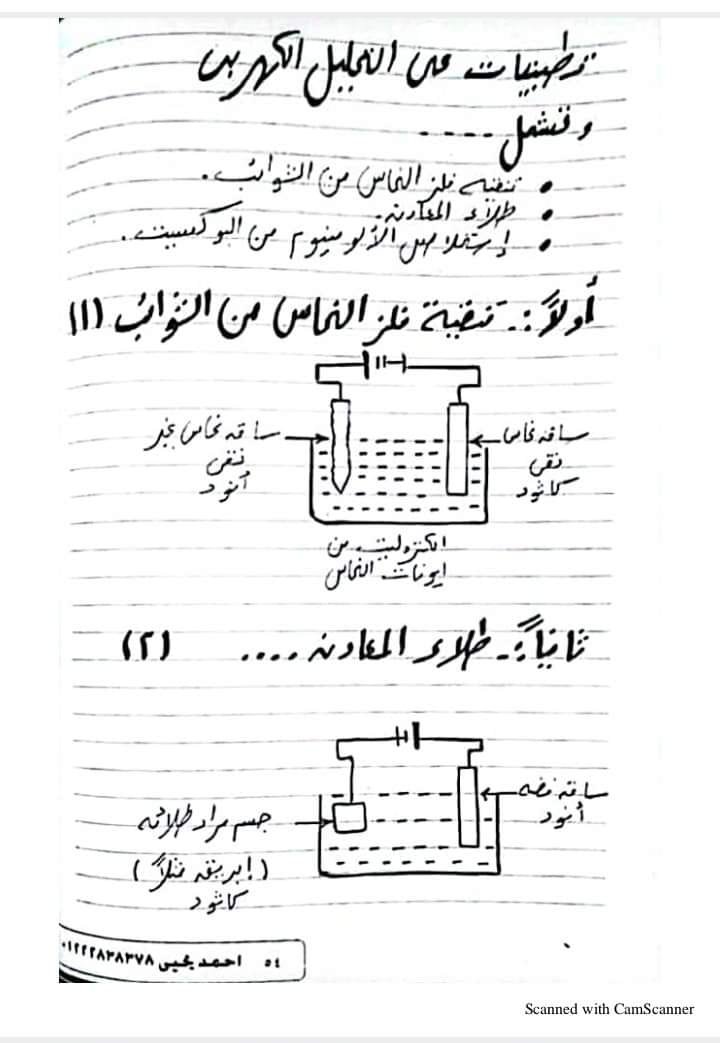 تطبيقات على التحليل الكهربى
وتشمل .....
• تنقيه فلز النحاس من الشوائب.
• طلاء المعادن.
• إستخلاص الألومنيوم من البوكسيت.
أولاً:- تنقية فلز النحاس من الشوائب (١)
ساقه نحاس غير
نقى
أنود
ساقه نحاس
نقى
كاثود
الكتروليت من
ايونات النحاس
ثانياً:- طلاء المعادن .... (٢)
ساقه فضه
أنود
جسم مراد طلائه
(إبريق مثلاً)
كاثود
٥٤ احمد يحيى ٠١٢٢٢٨٣٨٣٧٨
Scanned with CamScanner